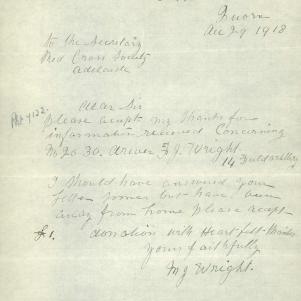 Quorn
Dec 29 1918
To the Secretary
Red Cross Society
Adelaide
Dear Sir
Please accept my thanks for
information received Concerning
No 2630. Driver J. Wright.
14 Field Artillery
I should have answered your
letter sooner, but have been
away from home please accept
£1. donation with Heart-felt thanks
yours faithfully
M J Wright.